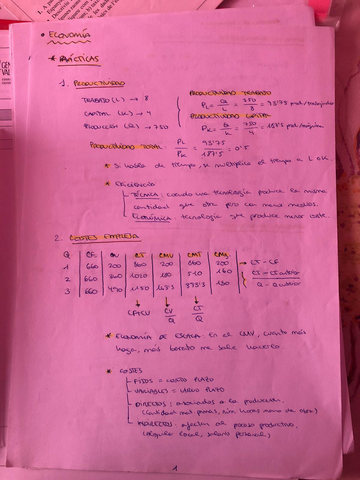 • ECONOMÍA
* PRÁCTICAS
1. PRODUCTIVIDAD
TRABAJO (L) → 8
CAPITAL (K) → 4
PRODUCCIÓN (Q) → 750
PRODUCTIVIDAD TRABAJO
PL = Q/L = 750/8 = 93'75 prod./trabajador
PRODUCTIVIDAD CAPITAL
PK = Q/K = 750/4 = 187'5 prod./máquina
PRODUCTIVIDAD TOTAL: PL/PK = 93'75/187'5 = 0'5
* Si habla de tiempo, se multiplica el tiempo a L o K.
* EFICIENCIA
TÉCNICA: cuando una tecnología produce la misma
cantidad que otra pero con menos medios.
ECONÓMICA: tecnología que produce menor coste.
2. COSTES EMPRESA
Q CF CV CT CMV CMT CMg
1 660 200 860 200 860 200
2 660 360 1020 180 510 160
3 660
→ CT - CF
CT - CT anterior
Q - Q anterior
CF+CV
CV/Q
CT/Q
* ECONOMÍA DE ESCALA: En el CMV, cuanto más
haga, más barato me sale hacerlo.
* COSTES
FIJOS = CORTO PLAZO
VARIABLES = LARGO PLAZO
DIRECTOS: asociados a la producción,
(cantidad mat. primas, horas mano de obra)
INDIRECTOS: afectan al proceso productivo,
(alquiler local, salario personal)
1